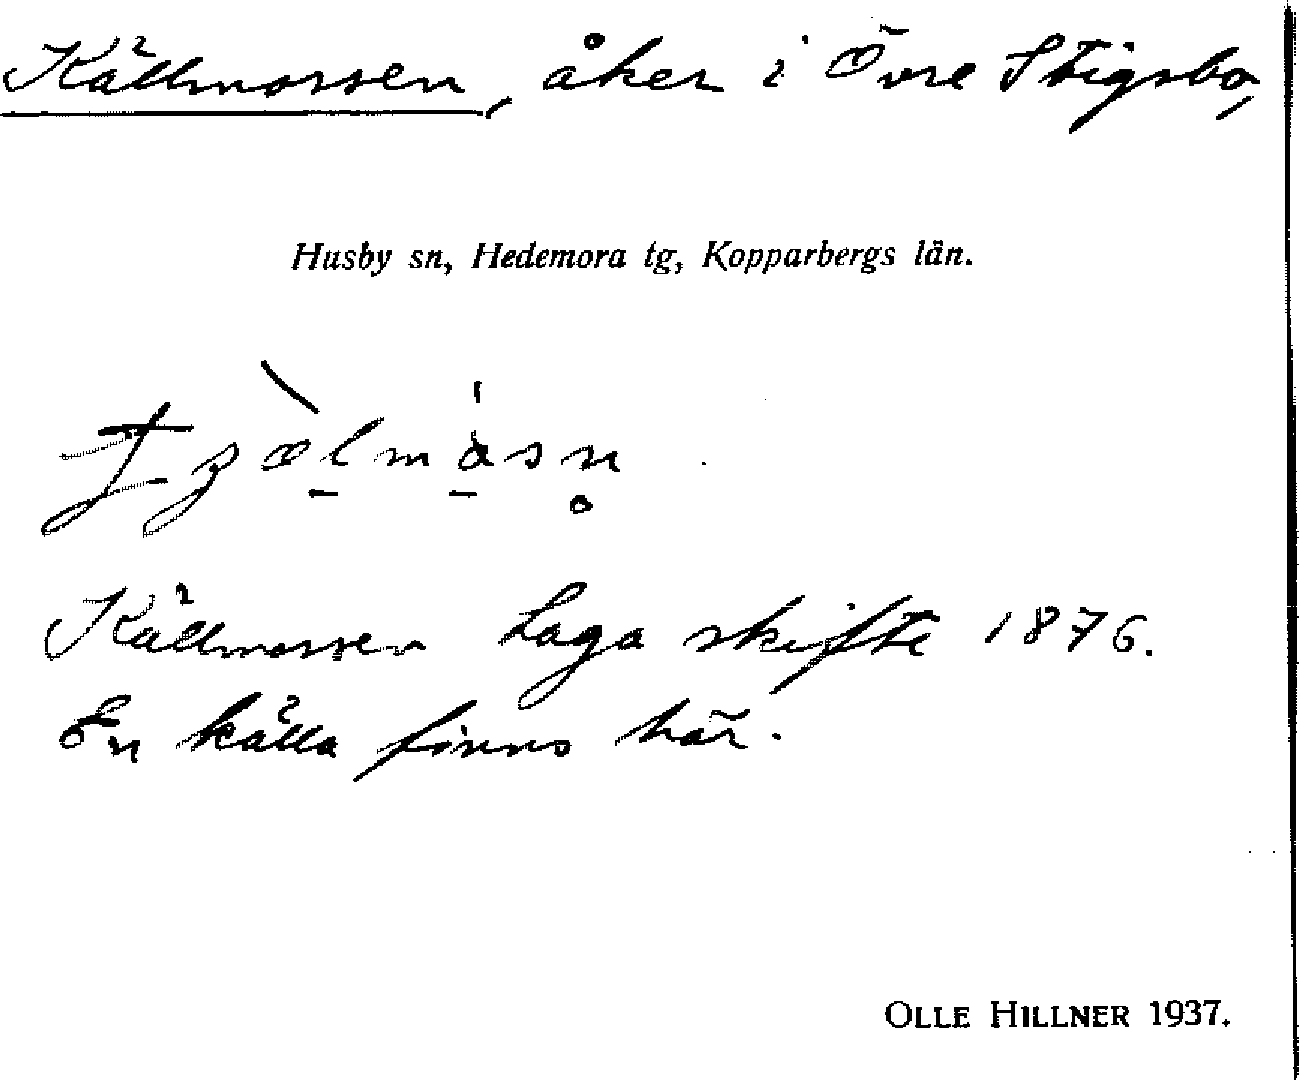 Källmossen, åker i Övre Stigsbo,
Husby sn, Hedemora tg, Kopparbergs län.
Källmossen Laga skifte 1876.
En källa finns här.
OLLE HILLNER 1937.